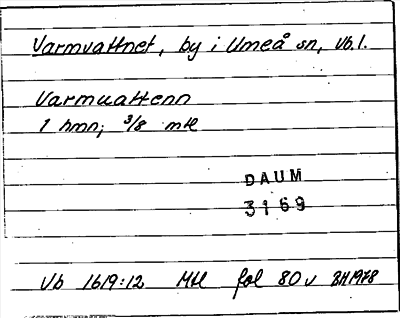 Varmvattnet, by i Umeå sn, Vb.l.
Varmuattenn
1 hmn; 3/8 mtl
DAUM
3169
Vb 1619:12 Mtl fol 80v BH1978